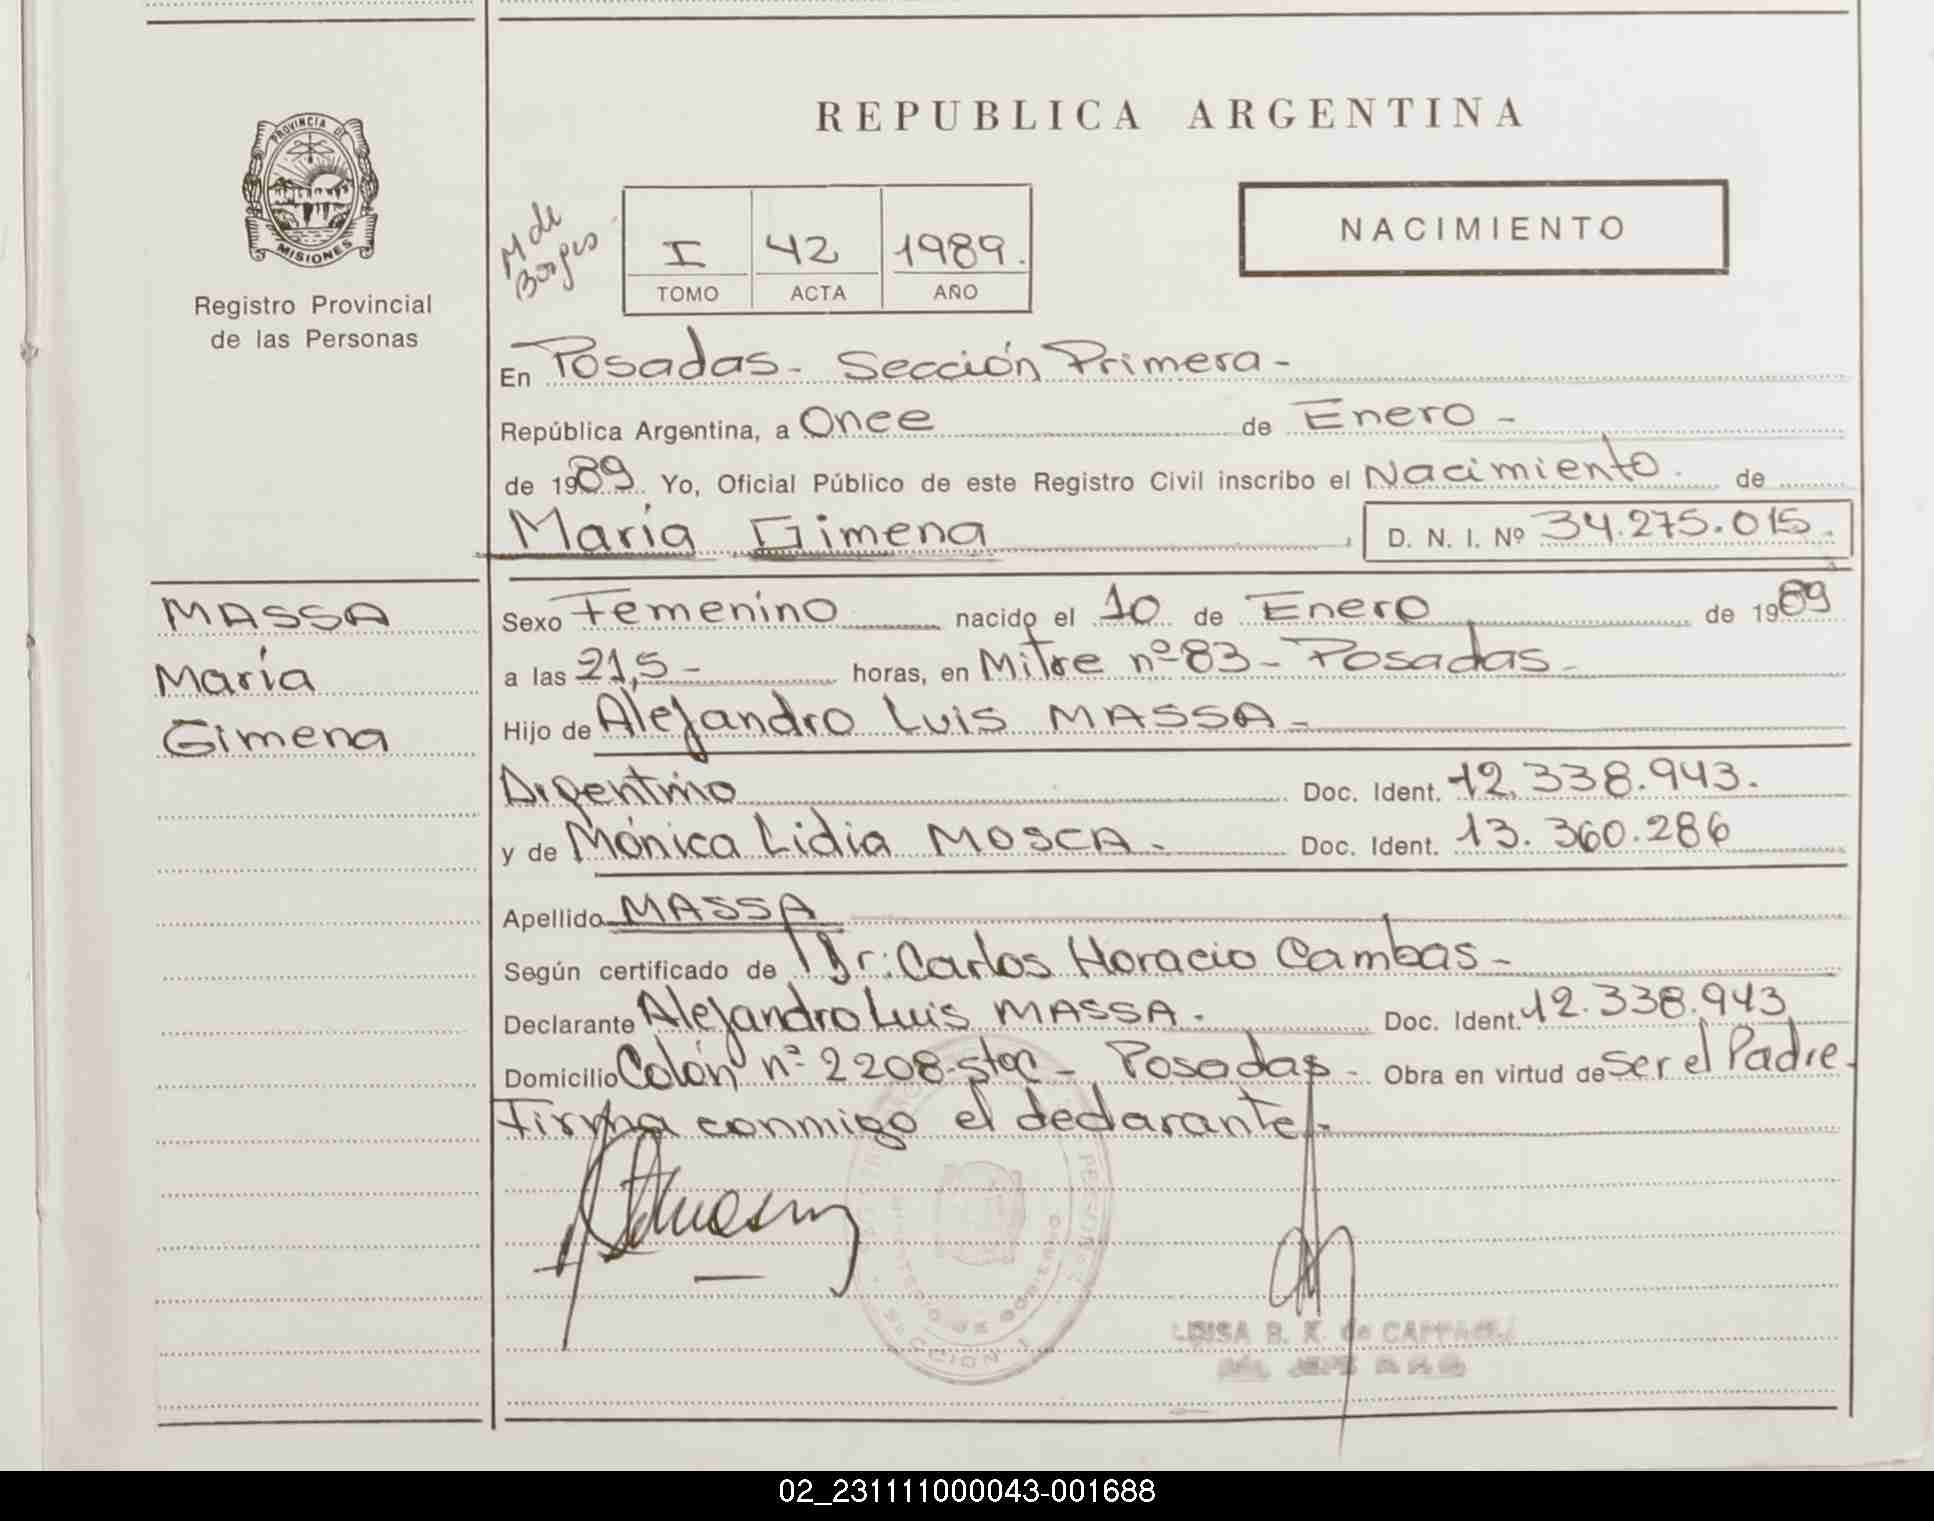 REPUBLICA ARGENTINA
PROVINCIA DE
MISIONES
Registro Provincial
de las Personas
M de
Borges
I 42 1989.
TOMO ACTA AÑO
NACIMIENTO
En Posadas - Sección Primera -
República Argentina, a Once de Enero -
de 1989 Yo, Oficial Público de este Registro Civil inscribo el Nacimiento de
María Gimena D. N. I. Nº 34.275.015.
MASSA
María
Gimena
Sexo Femenino nacido el 10 de Enero de 1989
a las 21,5 - horas, en Mitre nº 83 - Posadas -
Hijo de Alejandro Luis MASSA -
Argentino Doc. Ident. 12.338.943.
y de Mónica Lidia MOSCA - Doc. Ident. 13.360.286
Apellido MASSA
Según certificado de Dr: Carlos Horacio Cambas -
Declarante Alejandro Luis MASSA - Doc. Ident. 12.338.943
Domicilio Colón nº 2208 - Posadas - Obra en virtud de Ser el Padre -
Firma conmigo el declarante -
SECCION 1
LUISA B. K. de
02_231111000043-001688